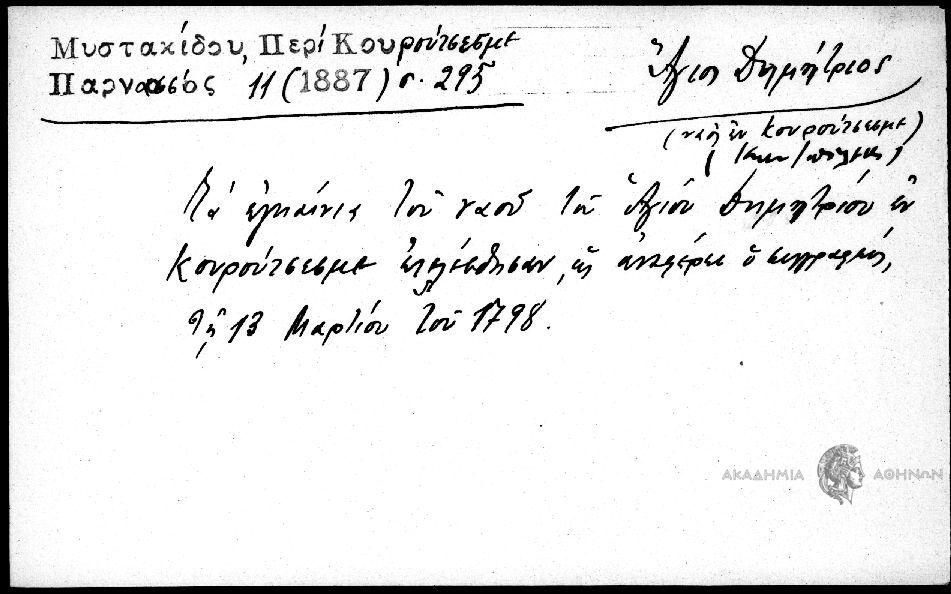 Μυστακίδου, Περί Κουρούτσεσμε
Παρνασσός 11 (1887) σ. 295
Ἅγιος Δημήτριος
(ναὸς ἐν Κουρούτσεσμε)
(Κων/πόλεως)
Τὰ ἐγκαίνια τοῦ ναοῦ τοῦ Ἁγίου Δημητρίου ἐν
Κουρούτσεσμε ἐτελέσθησαν, ὡς ἀναφέρει ὁ συγγραφεύς,
τῇ 13 Μαρτίου τοῦ 1798.
ΑΚΑΔΗΜΙΑ ΑΘΗΝΩΝ